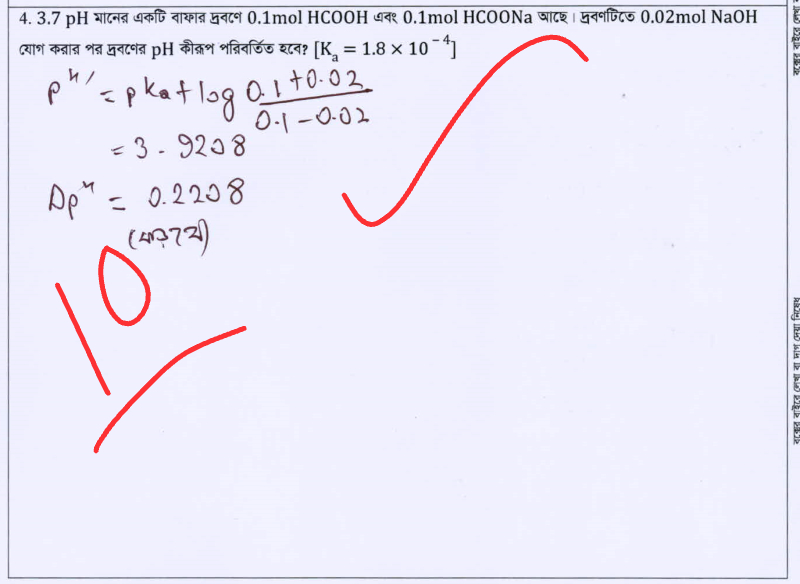 4. 3.7 pH মানের একটি বাফার দ্রবণে 0.1mol HCOOH এবং 0.1mol HCOONa আছে। দ্রবণটিতে 0.02mol NaOH
যোগ করার পর দ্রবণের pH কীরূপ পরিবর্তিত হবে? [Kₐ = 1.8 × 10⁻⁴]
pᴴ′ = pka + log (0.1+0.02)/(0.1-0.02)
= 3.9208
Δpᴴ = 0.2208
10